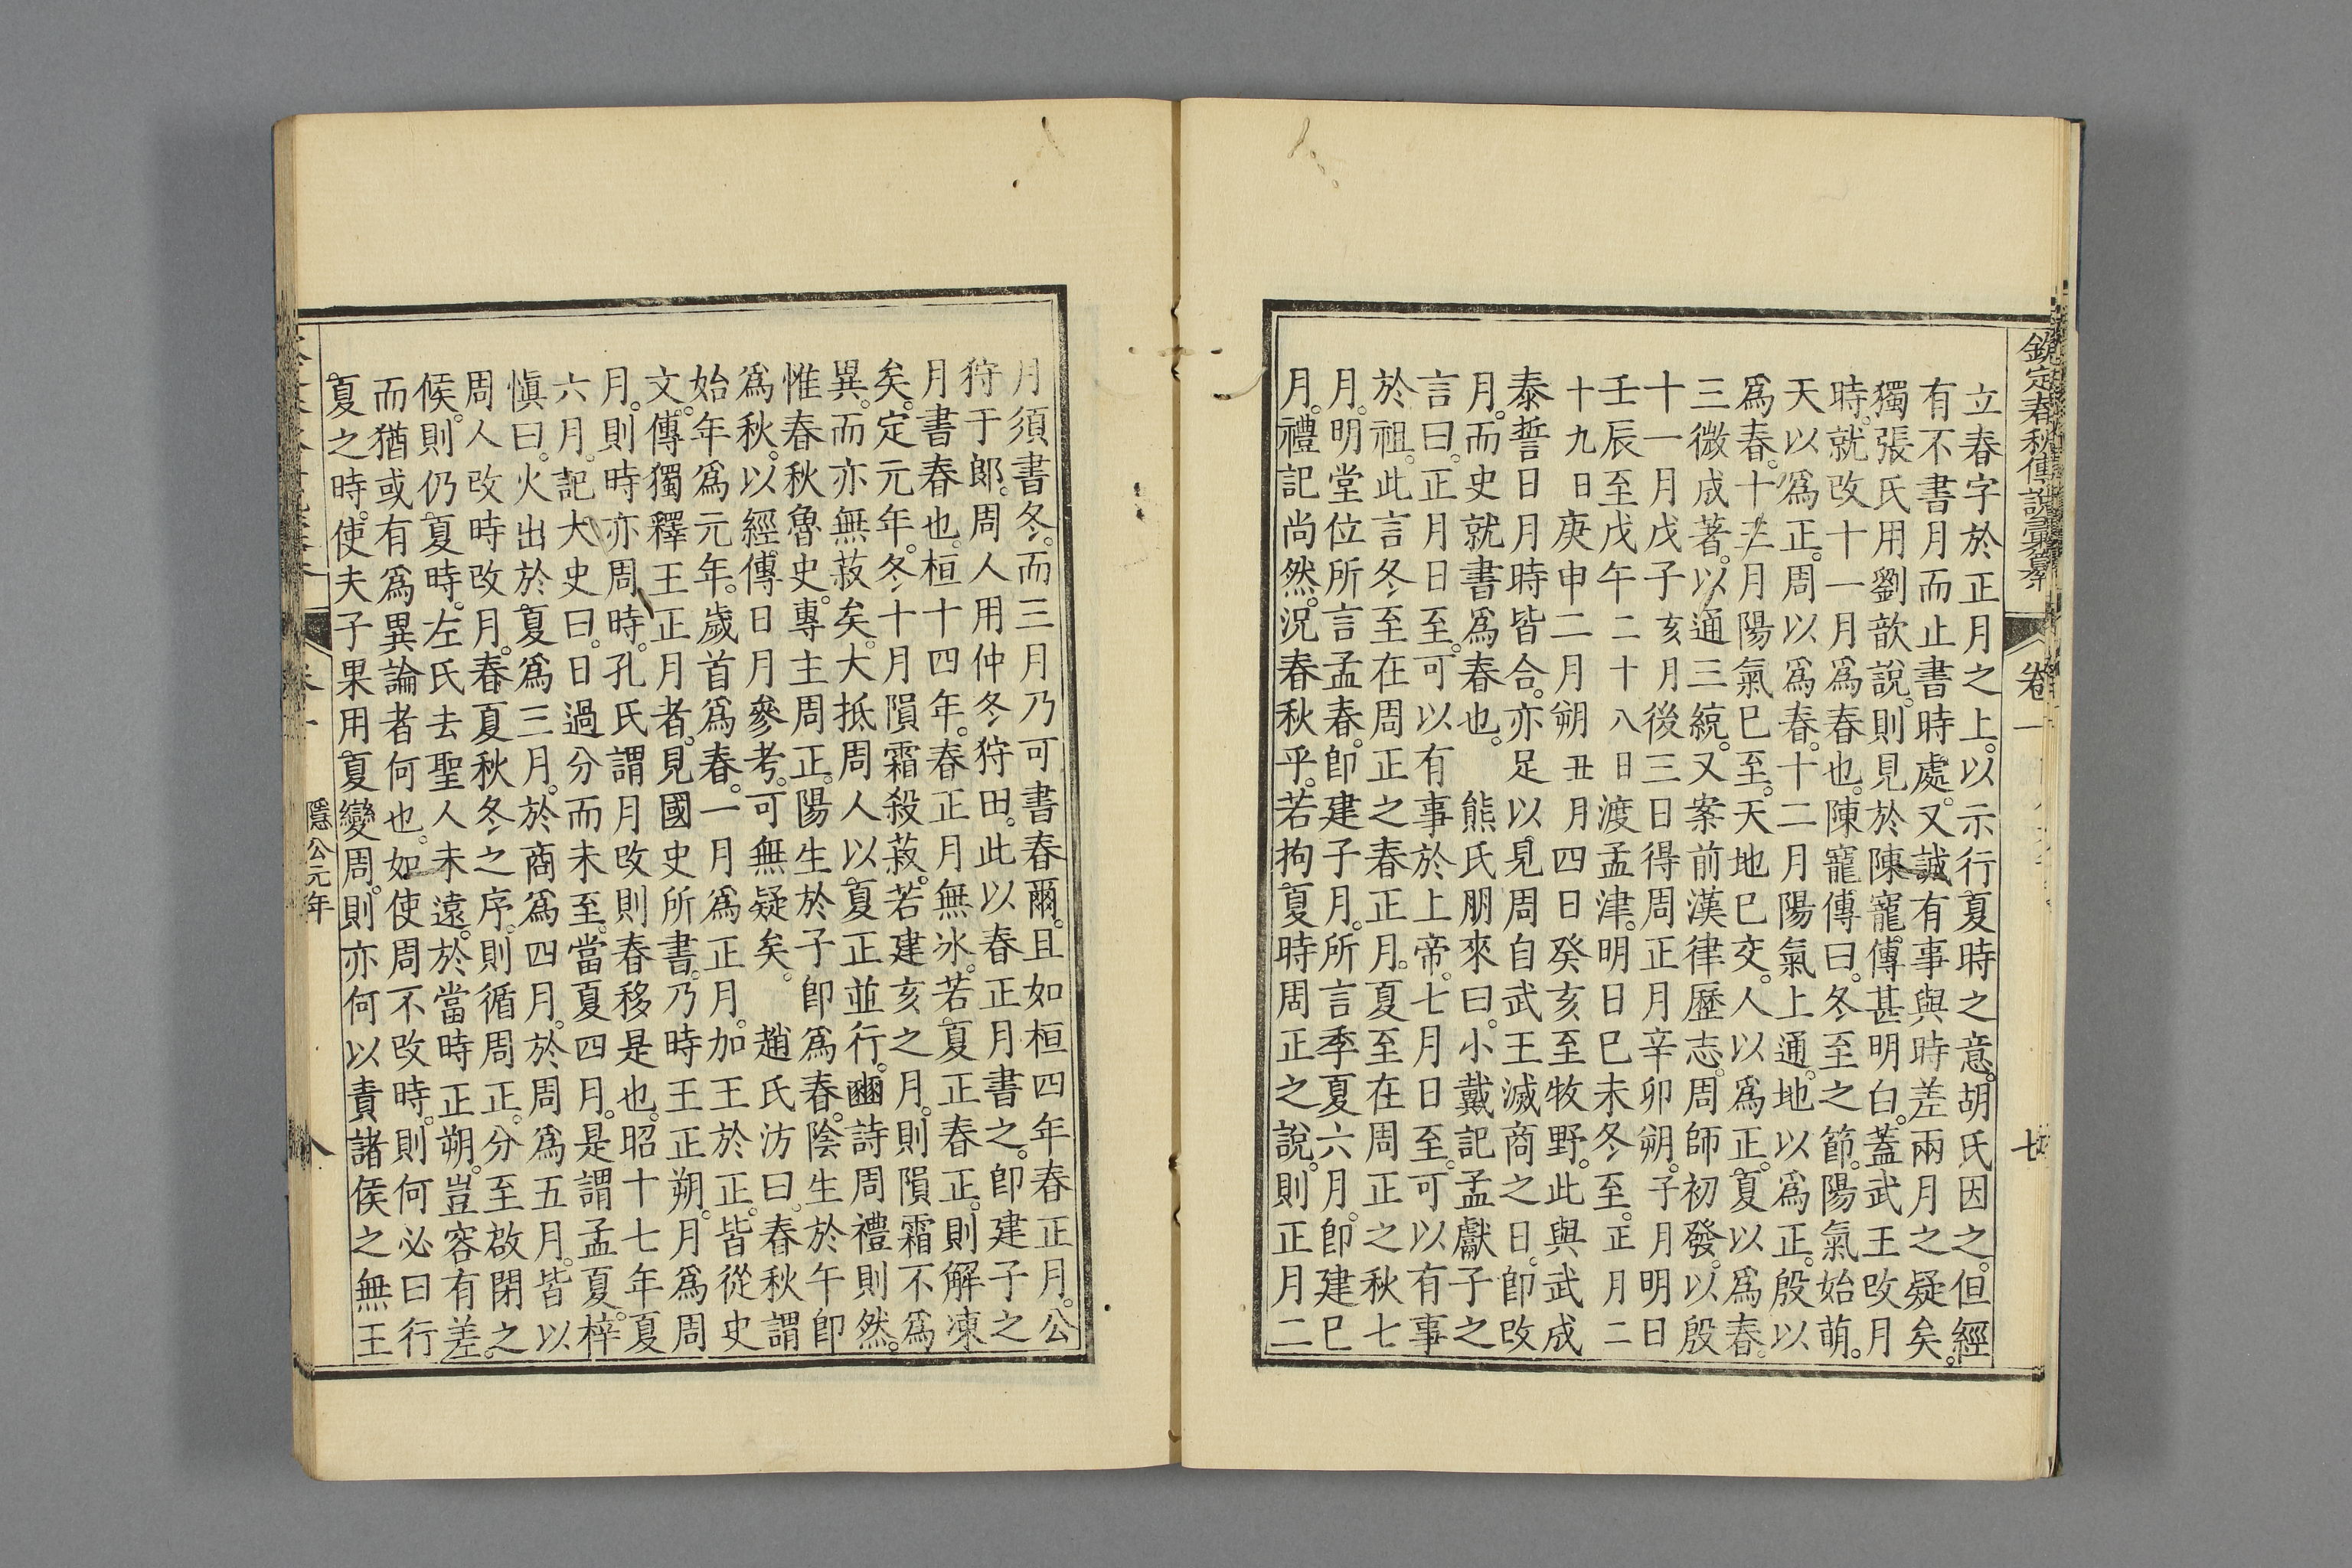 欽定春秋傳說彙纂 卷一 七
立春字於正月之上。以示行夏時之意。胡氏因之。但經
有不書月而止書時處。又誠有事與時差兩月之疑矣。
獨張氏用劉歆說。則見於陳寵傳甚明白。蓋武王改月
時。就改十一月爲春也。陳寵傳曰。冬至之節。陽氣始萌。
天以爲正。周以爲春。十二月陽氣上通。地以爲正。殷以
爲春。十三月陽氣已至。天地已交。人以爲正。夏以爲春。
三微成著。以通三統。又案前漢律歷志。周師初發。以殷
十一月戊子亥月後三日得周正月辛卯朔。子月明日
壬辰至戊午二十八日渡孟津。明日已未冬至。正月二
十九日庚申二月朔丑月四日癸亥至牧野。此與武成
泰誓日月時皆合。亦足以見周自武王滅商之日。卽改
月。而史就書爲春也。　熊氏朋來曰。小戴記孟獻子之
言曰。正月日至。可以有事於上帝。七月日至。可以有事
於祖。此言冬至在周正之春正月。夏至在周正之秋七
月。明堂位所言孟春。卽建子月。所言季夏六月。卽建巳
月。禮記尚然。況春秋乎。若拘夏時周正之說。則正月二
月須書冬。而三月乃可書春爾。且如桓四年春正月。公
狩于郎。周人用仲冬狩田。此以春正月書之。卽建子之
月書春也。桓十四年。春正月無冰。若夏正春正。則解凍
矣。定元年。冬十月隕霜殺菽。若建亥之月。則隕霜不爲
異。而亦無菽矣。大抵周人以夏正並行。豳詩周禮則然。
惟春秋魯史。專主周正。陽生於子卽爲春。陰生於午卽
爲秋。以經傳日月參考。可無疑矣。　趙氏汸曰。春秋謂
始年爲元年。歲首爲春。一月爲正月。加王於正。皆從史
文。傳獨釋王正月者。見國史所書。乃時王正朔。月爲周
月。則時亦周時。孔氏謂月改則春移是也。昭十七年夏
六月。記大史曰。日過分而未至。當夏四月。是謂孟夏。梓
愼曰。火出於夏爲三月。於商爲四月。於周爲五月。皆以
周人改時改月。春夏秋冬之序。則循周正。分至啟閉之
候。則仍夏時。左氏去聖人未遠。於當時正朔。豈容有差。
而猶或有爲異論者何也。如使周不改時。則何必曰行
夏之時。使夫子果用夏變周。則亦何以責諸侯之無王
隱公元年 八